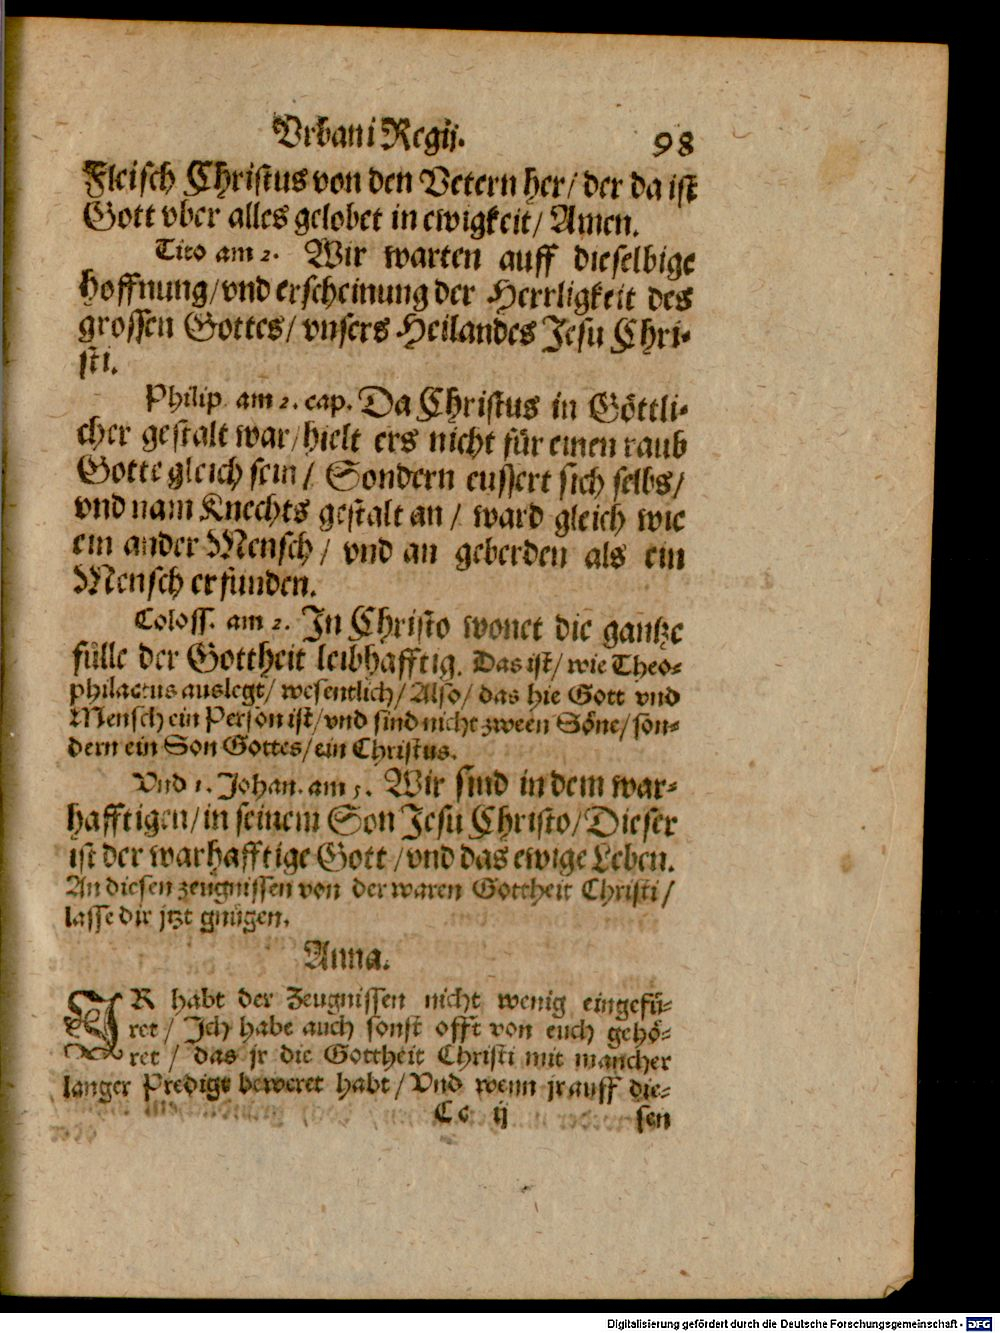 Vrbani Regij. 98
Fleisch Christus von den Vetern her/ der da ist
Gott vber alles gelobet in ewigkeit/ Amen.
Tito am 2. Wir warten auff dieselbige
hoffnung/ vnd erscheinung der Herrligkeit des
grossen Gottes/ vnsers Heilandes Jesu Chri-
sti.
Philip. am 2. cap. Da Christus in Göttli-
cher gestalt war/ hielt ers nicht für einen raub
Gotte gleich sein/ Sondern eussert sich selbs/
vnd nam Knechts gestalt an/ ward gleich wie
ein ander Mensch/ vnd an geberden als ein
Mensch erfunden.
Coloss. am 2. In Christo wonet die gantze
fülle der Gottheit leibhafftig. Das ist/ wie Theo-
philactus auslegt/ wesentlich/ Also/ das hie Gott vnd
Mensch ein Person ist/ vnd sind nicht zween Söne/ son-
dern ein Son Gottes/ ein Christus.
Vnd 1. Johan. am 5. Wir sind in dem war-
hafftigen/ in seinem Son Jesu Christo/ Dieser
ist der warhafftige Gott/ vnd das ewige Leben.
An diesen zeugnissen von der waren Gottheit Christi/
lasse dir jtzt gnügen.
Anna.
IR habt der Zeugnissen nicht wenig eingefü-
ret/ Ich habe auch sonst offt von euch gehö-
ret/ das jr die Gottheit Christi mit mancher
langer Predigt beweret habt/ Vnd wenn jr auff die-
Cc ij sen
Digitalisierung gefördert durch die Deutsche Forschungsgemeinschaft - DFG